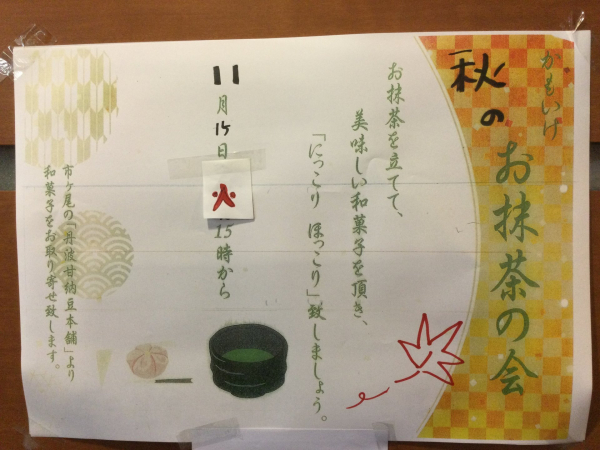 かもいけ
秋の
お抹茶の会
お抹茶を立てて、
美味しい和菓子を頂き、
「にっこり ほっこり」致しましょう。
11月15日
火
15時から
市ケ尾の「丹波甘納豆本舗」より
和菓子をお取り寄せ致します。